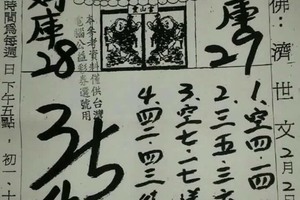 佛:濟世文 2月2
1.空四.四
2.三五.三
3.空七.一七
4.四二.四三
庫29
本參考資料僅供台灣
電腦公益彩券選號用
財庫28
35
時間為每週日下午五點,初一、十